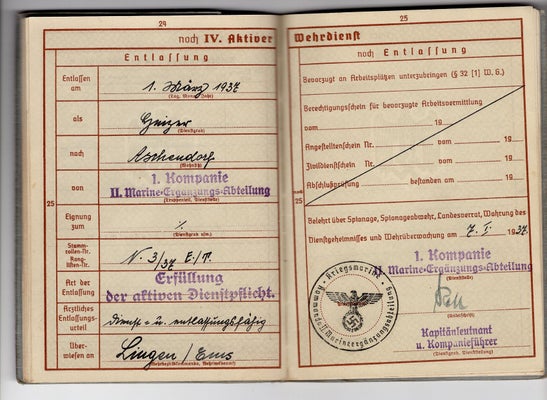 24
noch IV. Aktiver
Entlassung
Entlassen am
1. März 1937
(Tag, Monat, Jahr)
als
Heizer
(Dienstgrad)
nach
Aschendorf
(Wohnsitz)
von
1. Kompanie
II. Marine-Ergänzungs-Abteilung
(Truppenteil, Dienststelle)
Eignung zum
(Dienstgrad usw.)
Stammrollen-Nr.
Ranglisten-Nr.
N. 3/37
Art der Entlassung
Erfüllung
der aktiven Dienstpflicht.
Ärztliches Entlassungsurteil
dienst- u. entlassungsfähig
Überwiesen an
Lingen/Ems
25
25
Wehrdienst
noch Entlassung
Bevorzugt an Arbeitsplätzen unterzubringen (§ 32 [1] W. G.)
Berechtigungsschein für bevorzugte Arbeitsvermittlung
vom 19
Angestelltenschein Nr. vom 19
Zivildienstschein Nr. vom 19
Abschlußprüfung bestanden am 19
25
Belehrt über Spionage, Spionageabwehr, Landesverrat, Wahrung des
Dienstgeheimnisses und Wehrüberwachung am 1937
1. Kompanie
II. Marine-Ergänzungs-Abteilung
(Dienststelle)
Kriegsmarine
(Unterschrift)
Kapitänleutnant
u. Kompanieführer
(Dienstgrad, Dienststellung)